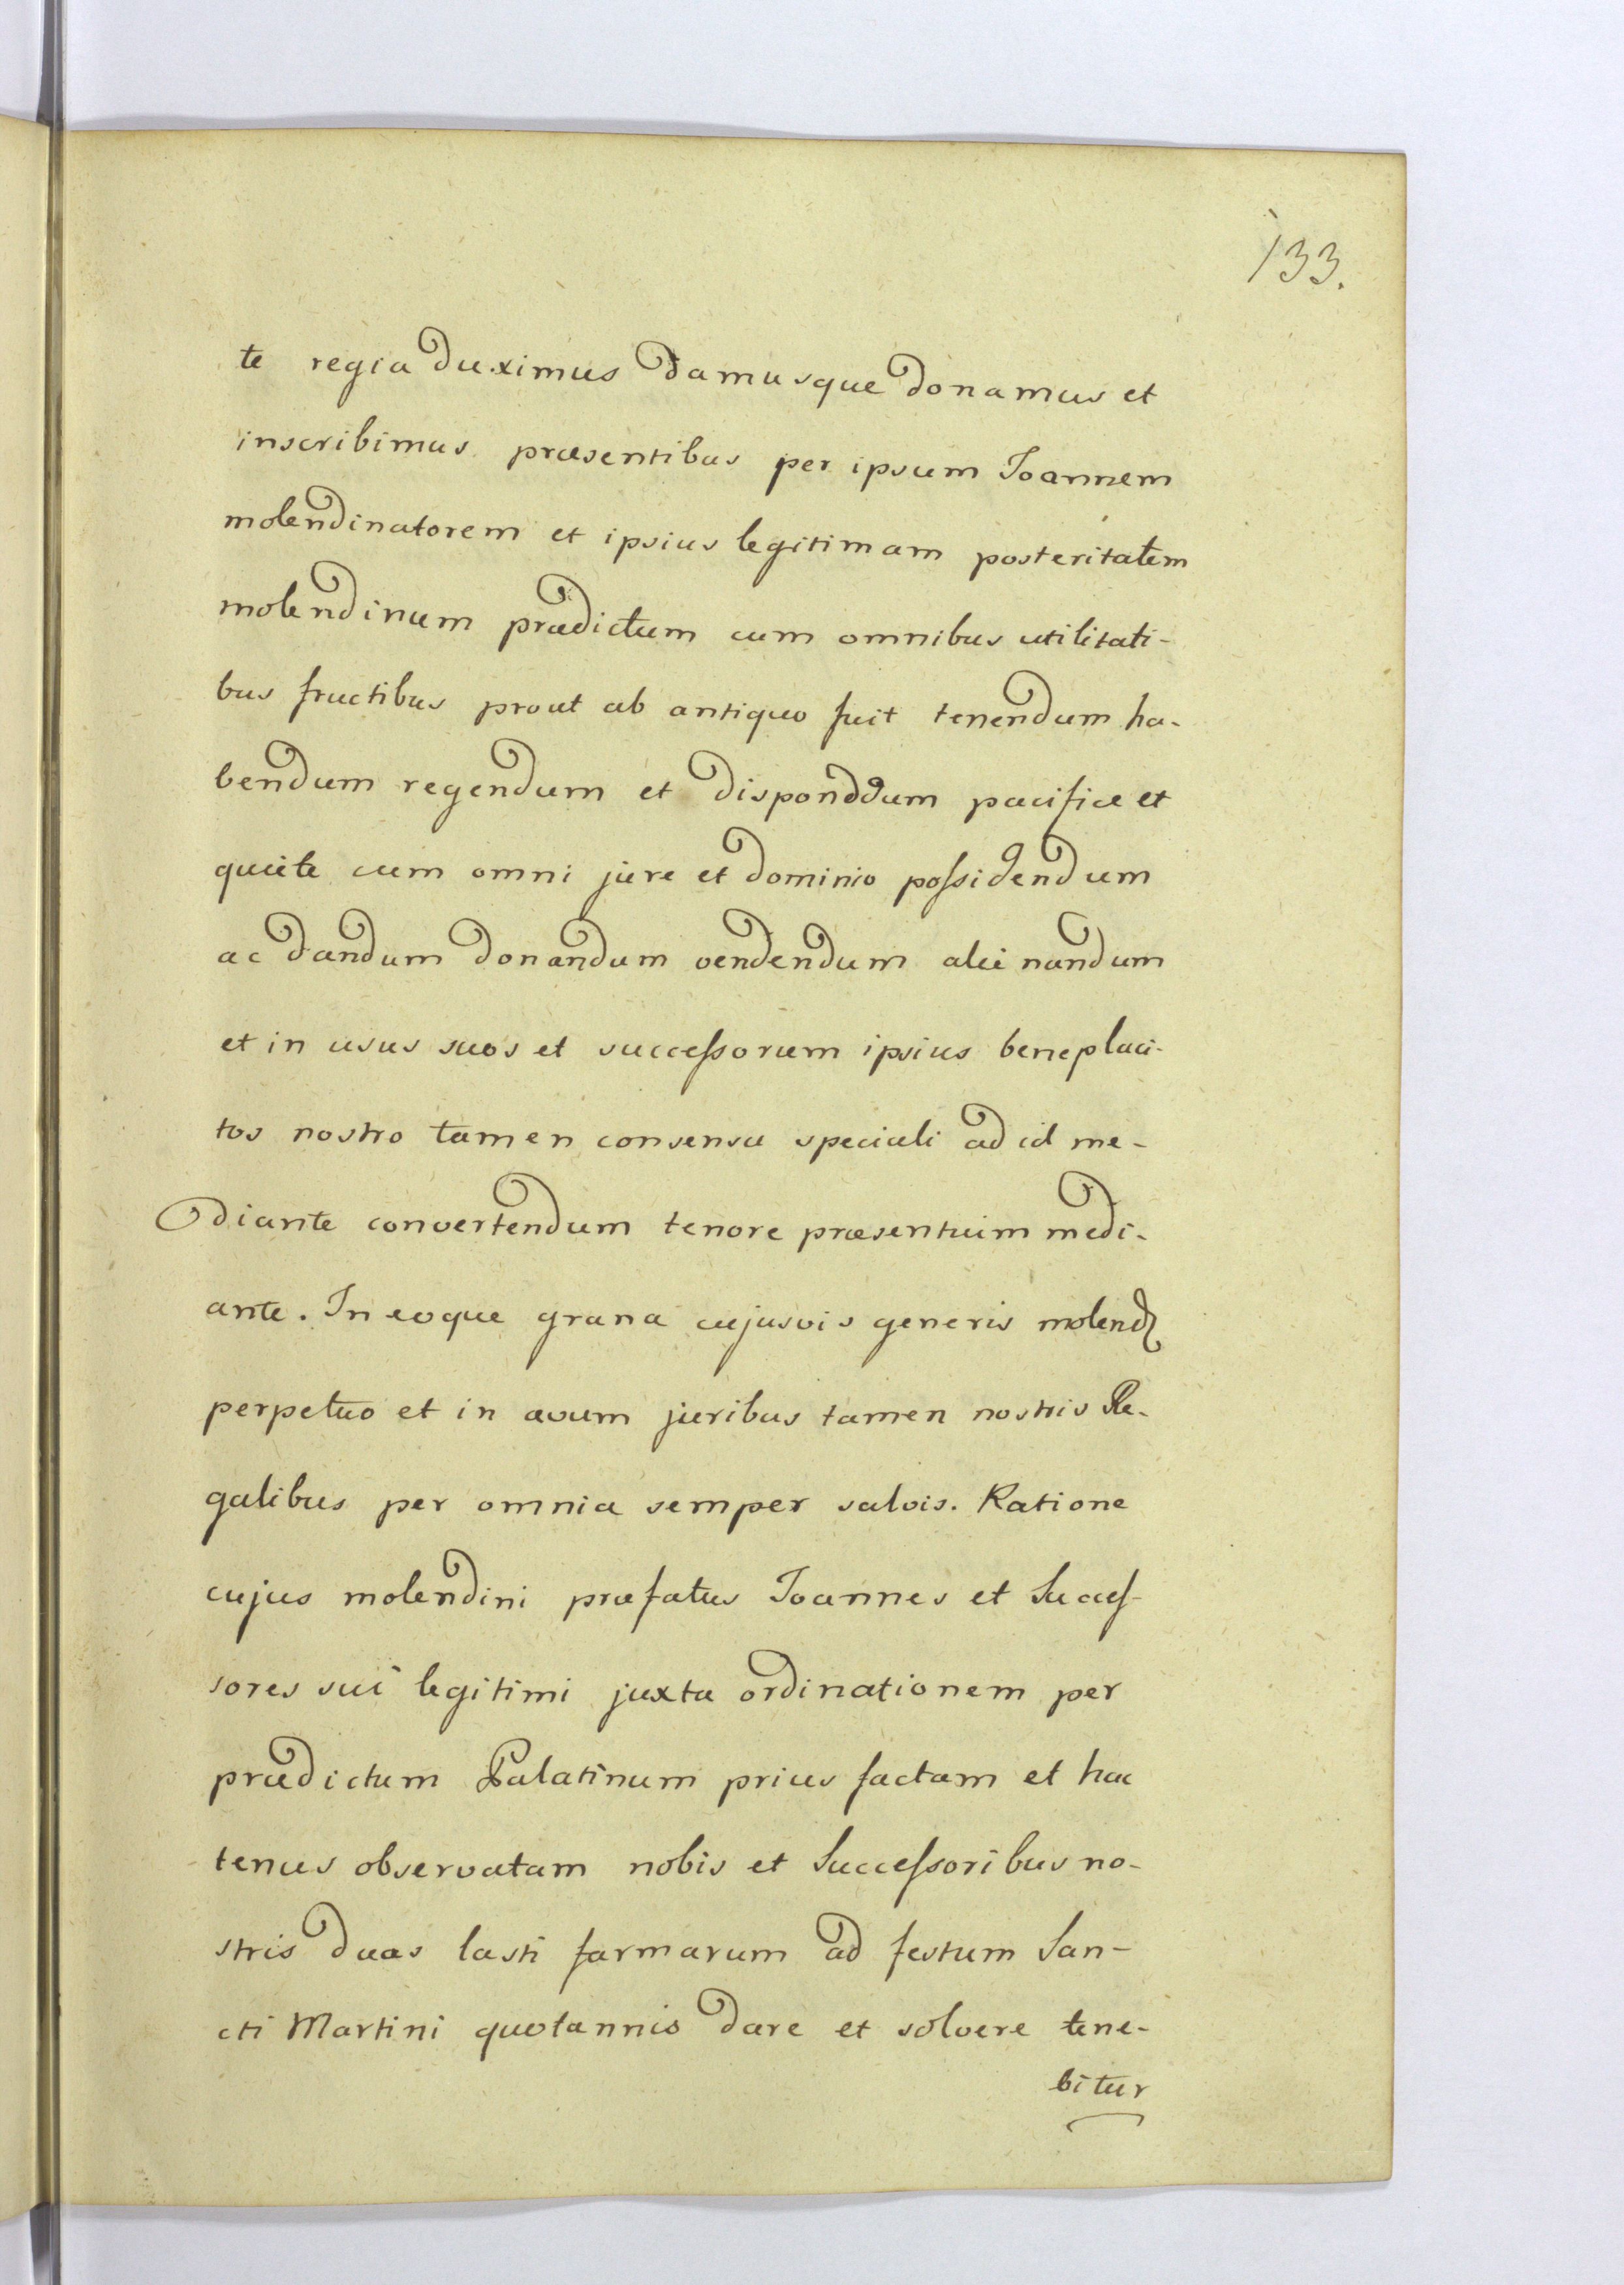 133.
te regia duximus damusque donamus et
inscribimus præsentibus per ipsum Joannem
molendinatorem et ipsius legitimam posteritatem
molendinum prædictum cum omnibus utilitati-
bus fructibus prout ab antiquo fuit tenendum ha-
bendum regendum et disponddum pacifice et
quiete cum omni jure et dominio poſsidendum
ac dandum donandum vendendum alienandum
et in usus suos et succeſsorum ipsius beneplaci-
tos nostro tamen consensu speciali ad id me-
diante convertendum tenore præsentium medi-
ante. In eoque grana cujusvis generis molend
perpetuo et in ævum juribus tamen nostris Re-
galibus per omnia semper salvis. Ratione
cujus molendini præfatus Joannes et Succeſ-
sores sui legitimi juxta ordinationem per
prædictum Palatinum prius factam et hac
tenus observatam nobis et Succeſsoribus no-
stris duas lasti farmarum ad festum San-
cti Martini quotannis dare et solvere tene-
bitur